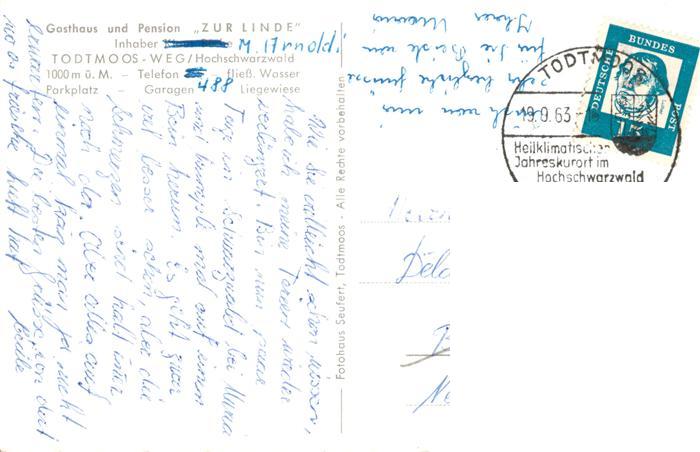 Gasthaus und Pension „ZUR LINDE"
Inhaber M. Arnold
TODTMOOS - WEG / Hochschwarzwald
1000 m ü. M. – Telefon 488 fließ. Wasser
Parkplatz – Garagen – Liegewiese
Fotohaus Seufert, Todtmoos - Alle Rechte vorbehalten
Wie Sie vielleicht schon wissen,
habe ich meine Tour wieder
verlängert. Bin nun paar
Tage im Schwarzwald bei Mama
und kurple mal auf einem
Bein herum. Es geht zwar
viel besser schon, aber die
Schmerzen sind halt immer
noch da. Aber alles auf
einmal kann man ja nicht
Die besten Grüsse von dort
wo es frische Luft hat
Auch von mir
sehr herzliche Grüsse
für Sie Beide von
Ihrer
TODTMOOS
19.9.63
Heilklimatischer
Jahreskurort im
Hochschwarzwald
DEUTSCHE BUNDESPOST
15